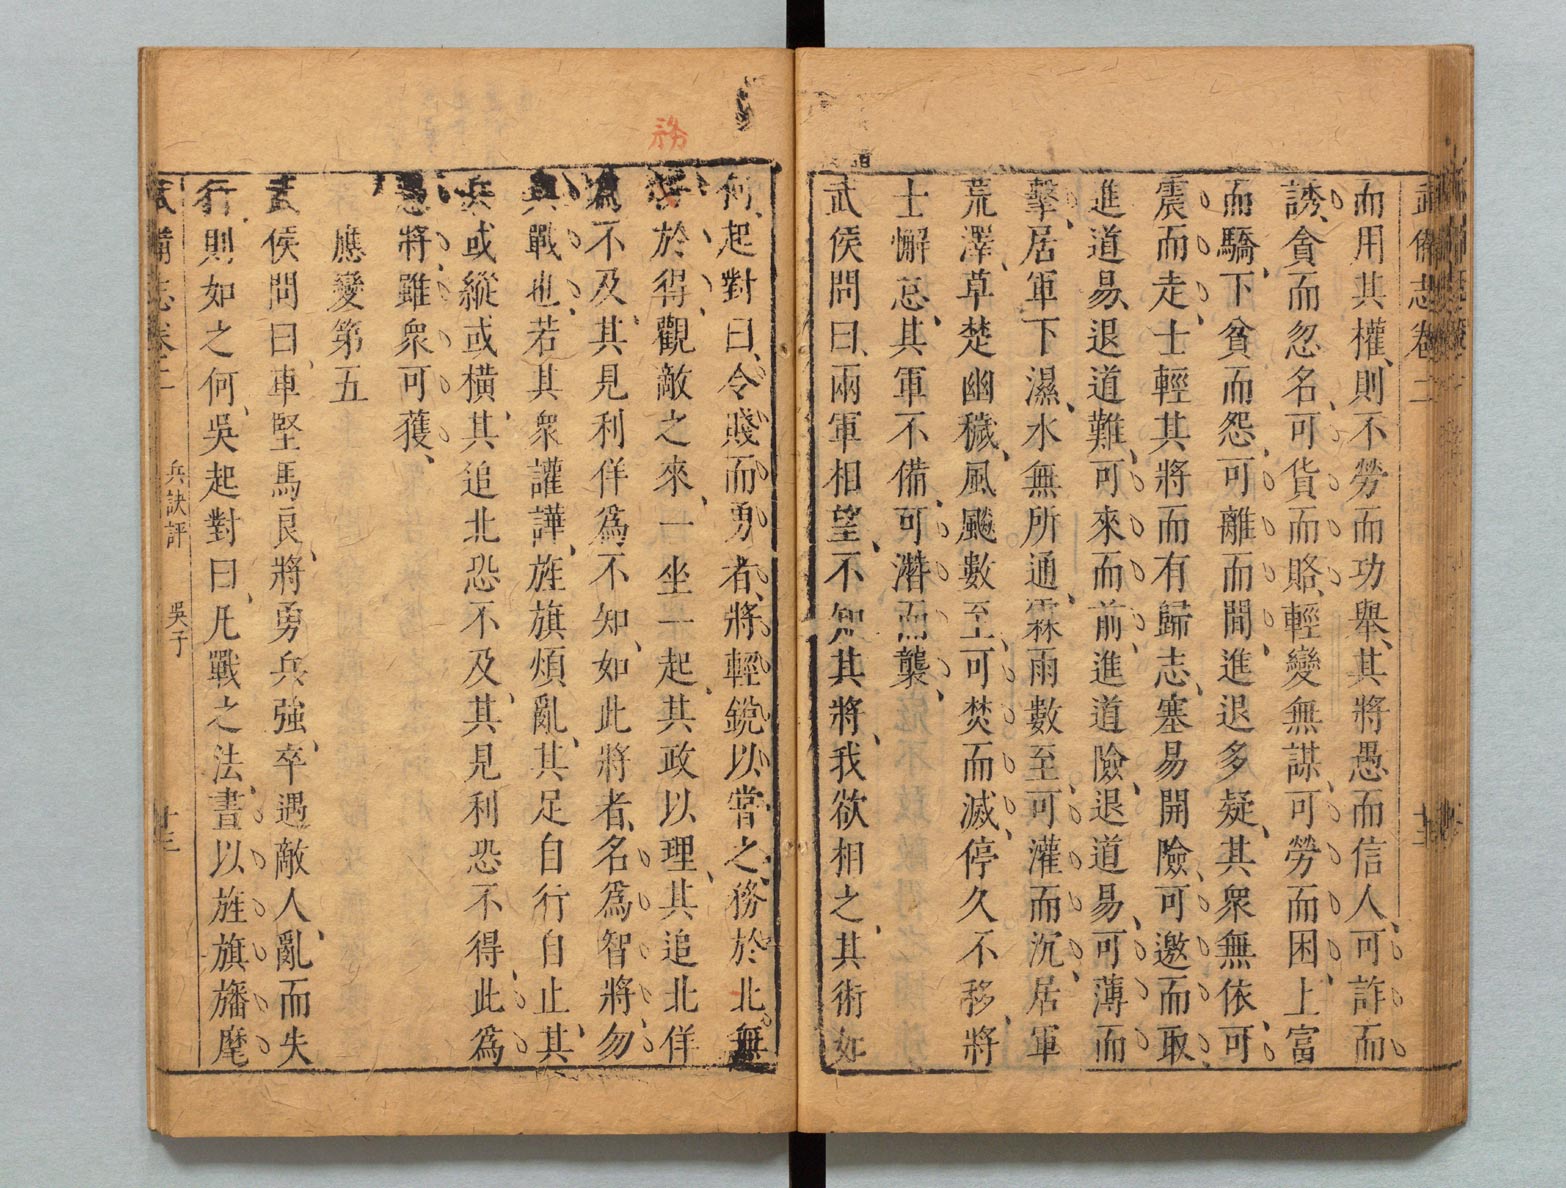 武備志卷二
而用其權、則不勞而功舉、其將愚而信人、可詐而
誘、貪而忽名、可貨而賂、輕變無謀、可勞而困、上富
而驕、下貧而怨、可離而間、進退多疑、其衆無依、可
震而走、士輕其將而有歸志、塞易開險、可邀而取、
進道易、退道難、可來而前、進道險、退道易、可薄而
擊、居軍下濕、水無所通、霖雨數至、可灌而沉、居軍
荒澤、草楚幽穢、風飈數至、可焚而滅、停久不移、將
士懈怠、其軍不備、可潛而襲、
武侯問曰、兩軍相望、不知其將、我欲相之、其術如
務
何、起對曰、令賤而勇者、將輕銳以嘗之、務於北、無
務於得、觀敵之來、一坐一起、其政以理、其追北佯
爲不及、其見利佯爲不知、如此將者、名爲智將、勿
與戰也、若其衆讙譁、旌旗煩亂、其足自行自止、其
兵或縱或橫、其追北恐不及、其見利恐不得、此爲
愚將、雖衆可獲、
應變第五
武侯問曰、車堅馬良、將勇兵強、卒遇敵人、亂而失
行、則如之何、吳起對曰、凡戰之法、晝以旌旗旛麾
武備志卷二 兵訣評 吳子 十三